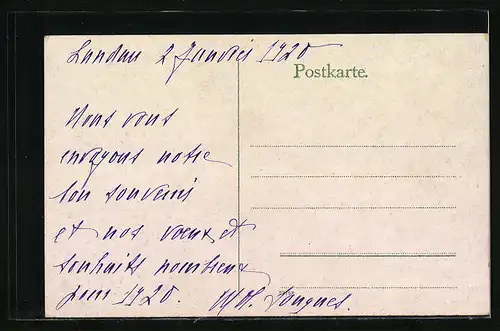 Landau 2 Janvier 1920
Postkarte.
Nous vous
envoyons notre
bon souvenir
et nos voeux et
souhaits nombreux
pour 1920.